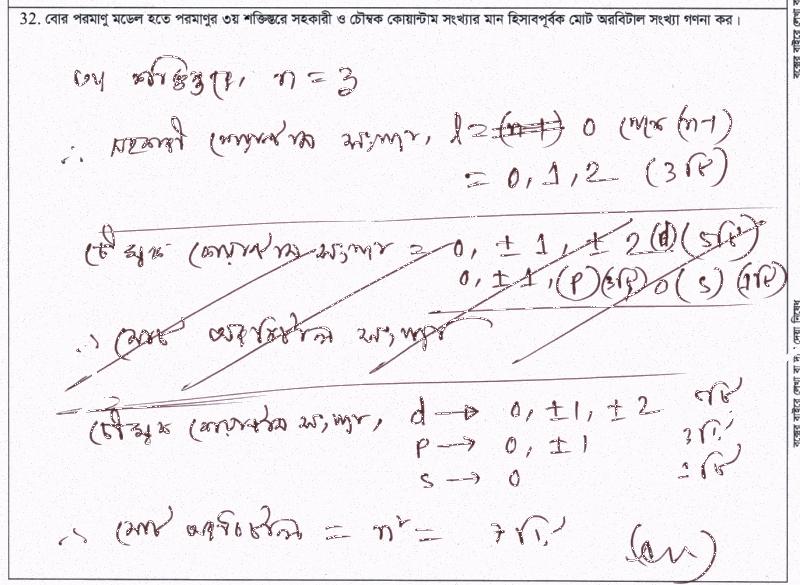 32. বোর পরমাণু মডেল হতে পরমাণুর ৩য় শক্তিস্তরে সহকারী ও চৌম্বক কোয়ান্টাম সংখ্যার মান হিসাবপূর্বক মোট অরবিটাল সংখ্যা গণনা কর।
৩য় শক্তিস্তরে, n = 3
∴ সহকারী কোয়ান্টাম সংখ্যা, l = (n-1) 0 থেকে (n-1)
= 0, 1, 2 (3টি)
চৌম্বক কোয়ান্টাম সংখ্যা = 0, ± 1, ± 2 (d) (5টি)
0, ± 1, (p) (3টি) 0 (s) (1টি)
∴ মোট অরবিটাল সংখ্যা
চৌম্বক কোয়ান্টাম সংখ্যা, d → 0, ±1, ± 2 ৫টি
p → 0, ±1 3টি
s → 0 1টি
∴ মোট অরবিটাল = n² = 9টি (Ans)